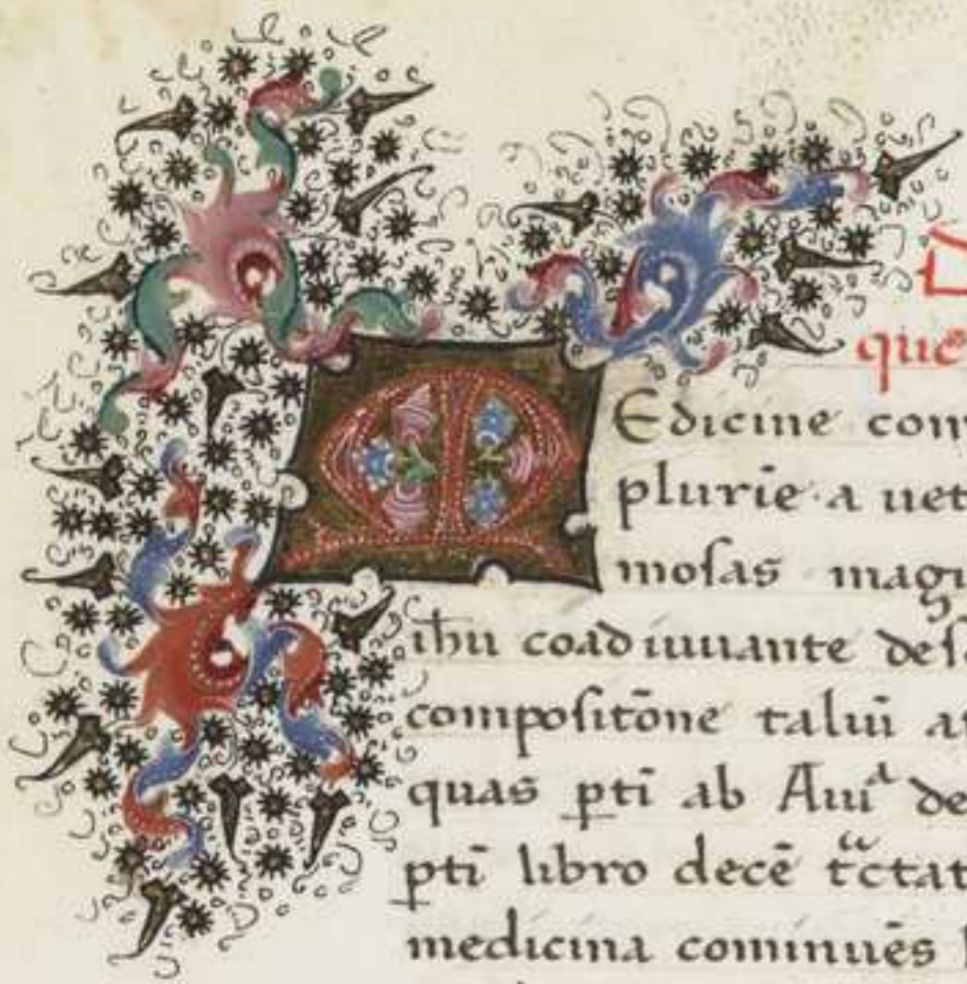 D
que
M
Edicine com
pluriē a uet
mosas magi
ihu coadiuuante des
compositōne taluī a
quas pti ab Aui de
pti libro decē tctat
medicina cominuēs